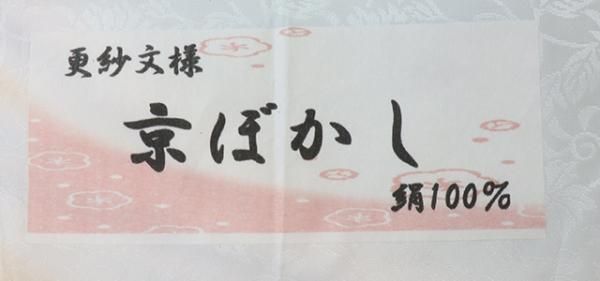 更紗文様
京ぼかし
絹100%